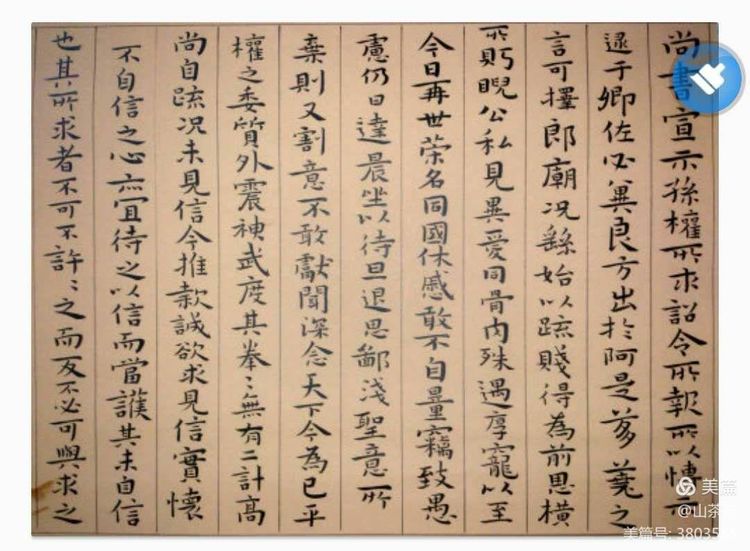 尚書宣示孫權所求詔令所報所以博示
逮于卿佐必冀良方出於阿是芻蕘之
言可擇郎廟況繇始以疏賤得為前恩橫
所眄睨公私見異愛同骨肉殊遇厚寵以至
今日再世榮名同國休慼敢不自量竊致愚
慮仍日達晨坐以待旦退思鄙淺聖意所
棄則又割意不敢獻聞深念天下今為已平
權之委質外震神武度其拳〻無有二計高
尚自疏況未見信今推款誠欲求見信實懷
不自信之心亦宜待之以信而當護其未自信
也其所求者不可不許〻之而反不必可與求之
美篇
@山茶
美篇号: